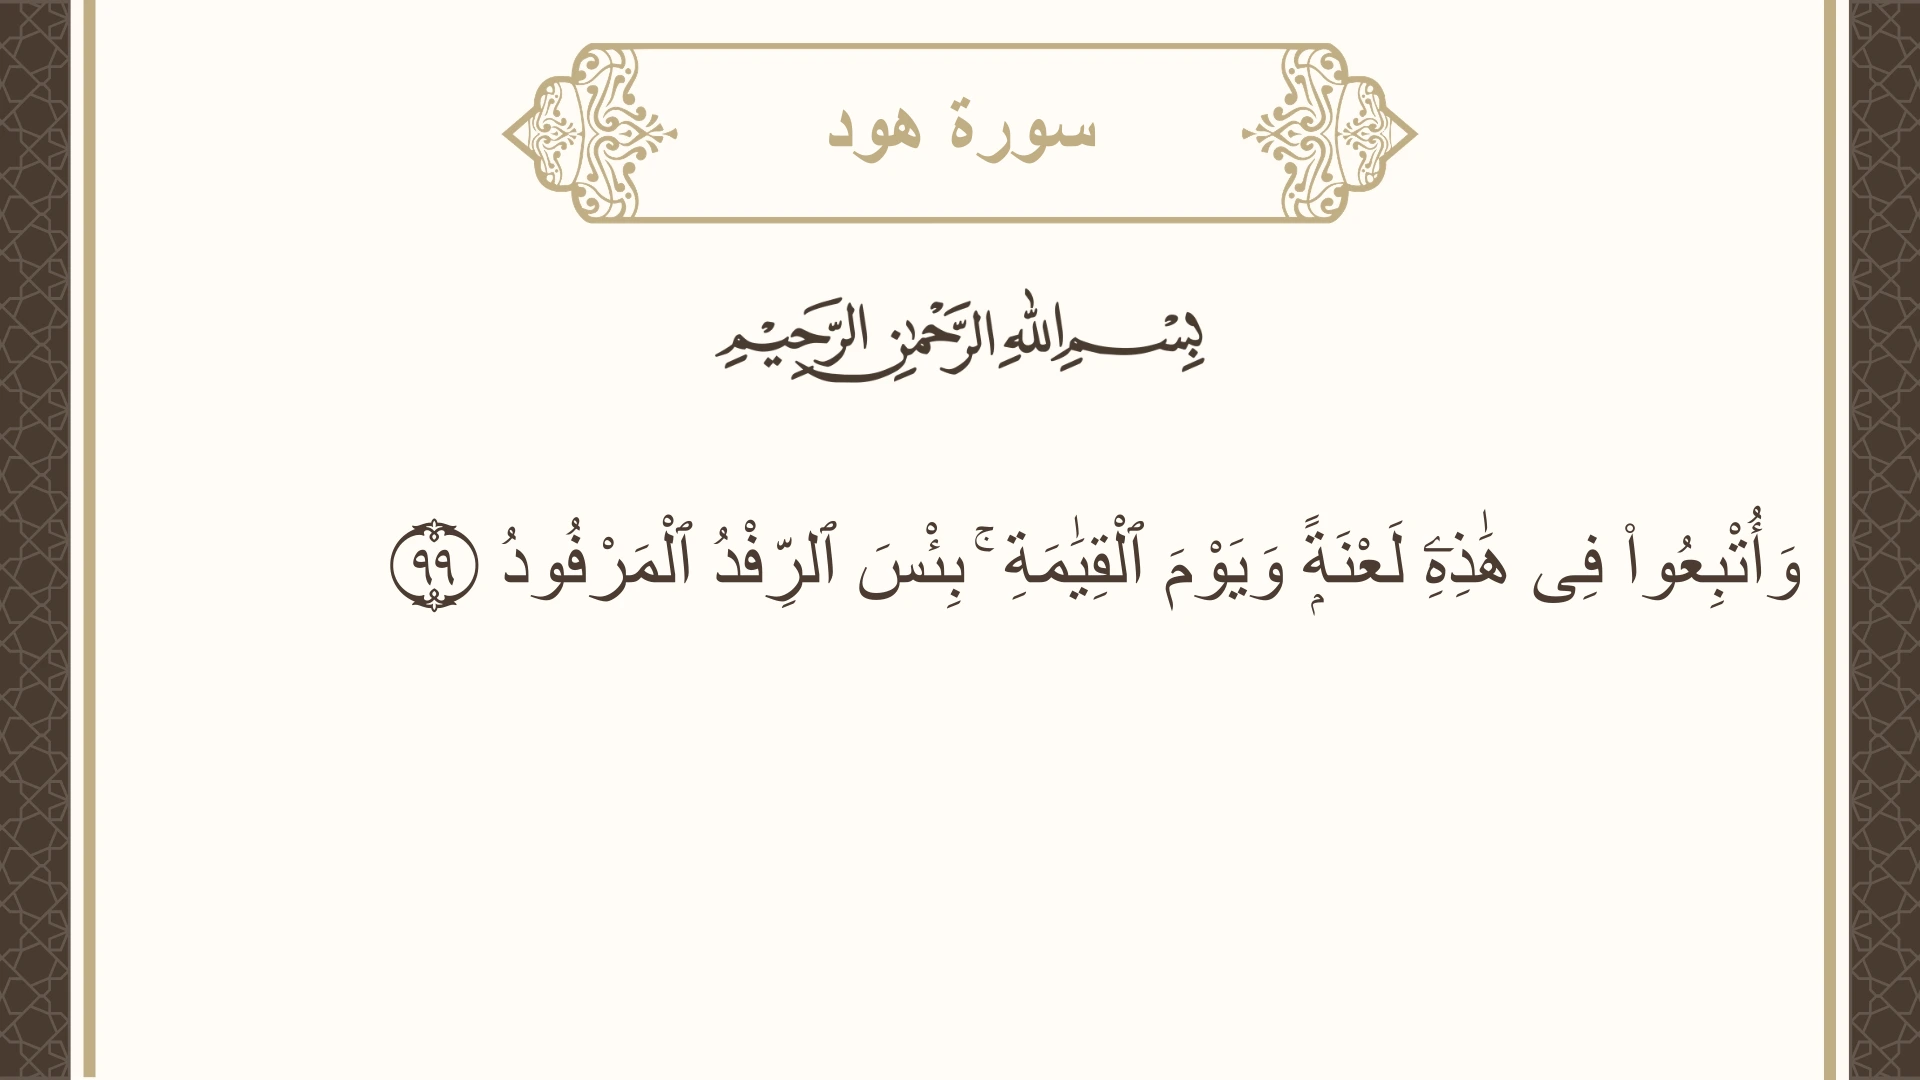 سورة هود
بِسْمِ اللهِ الرَّحْمٰنِ الرَّحِيْمِ
وَأُتْبِعُوا۟ فِى هَٰذِهِۦٓ لَعْنَةًۭ وَيَوْمَ ٱلْقِيَٰمَةِ ۚ بِئْسَ ٱلرِّفْدُ ٱلْمَرْفُودُ ٩٩